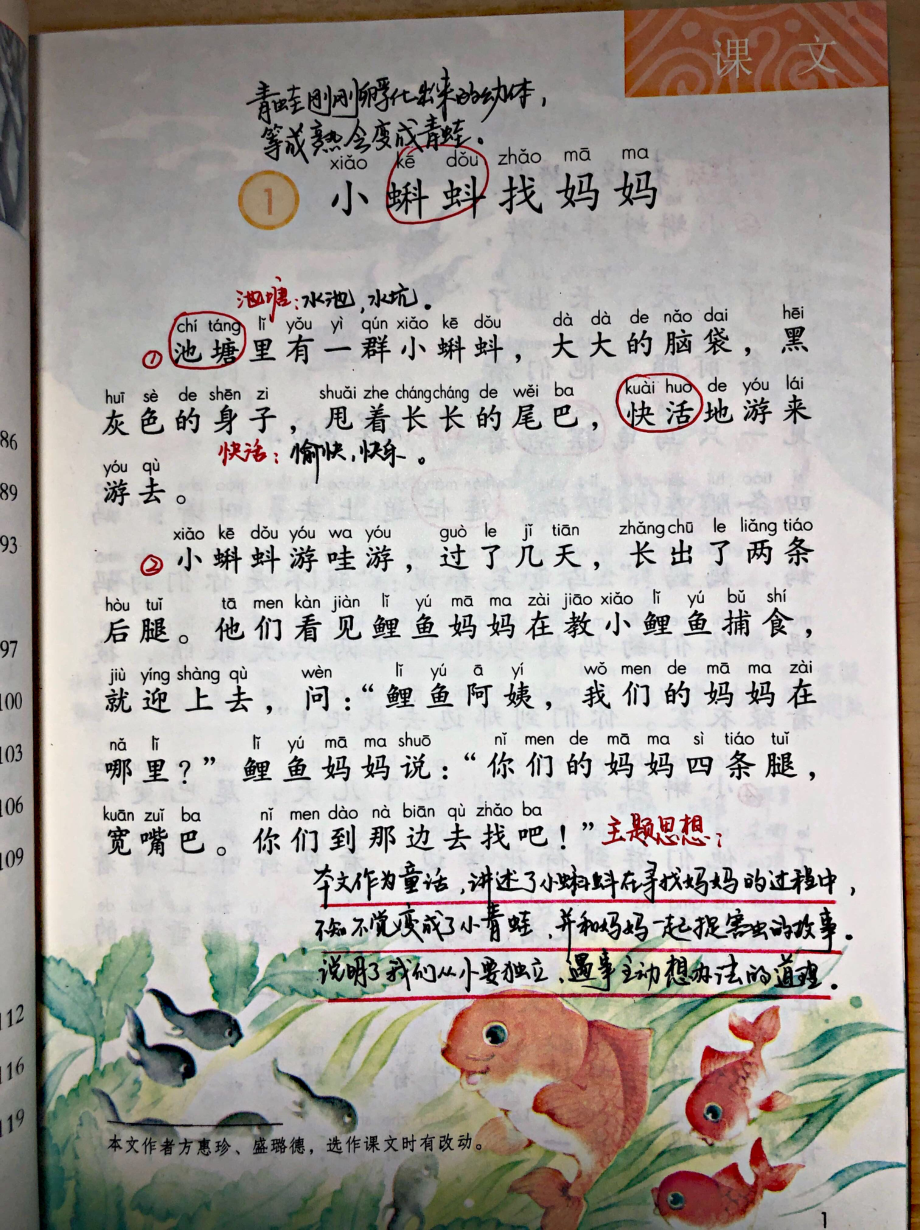 课 文
青蛙刚刚孵化出来的幼体，
等成熟会变成青蛙。
xiǎo kē dǒu zhǎo mā ma
1 小蝌蚪找妈妈
池塘：水池，水坑。
chí táng lǐ yǒu yì qún xiǎo kē dǒu dà dà de nǎo dai hēi
① 池塘里有一群小蝌蚪，大大的脑袋，黑
huī sè de shēn zi shuǎi zhe cháng cháng de wěi ba kuài huo de yóu lái
灰色的身子，甩着长长的尾巴，快活地游来
快活：愉快，快乐。
yóu qù
游去。
xiǎo kē dǒu yóu wa yóu guò le jǐ tiān zhǎng chū le liǎng tiáo
② 小蝌蚪游哇游，过了几天，长出了两条
hòu tuǐ tā men kàn jiàn lǐ yú mā ma zài jiāo xiǎo lǐ yú bǔ shí
后腿。他们看见鲤鱼妈妈在教小鲤鱼捕食，
jiù yíng shàng qù wèn lǐ yú ā yí wǒ men de mā ma zài
就迎上去，问：“鲤鱼阿姨，我们的妈妈在
nǎ lǐ lǐ yú mā ma shuō nǐ men de mā ma sì tiáo tuǐ
哪里？”鲤鱼妈妈说：“你们的妈妈四条腿，
kuān zuǐ ba nǐ men dào nà biān qù zhǎo ba
宽嘴巴。你们到那边去找吧！”主题思想：
本文作为童话，讲述了小蝌蚪在寻找妈妈的过程中，
不知不觉变成了小青蛙，并和妈妈一起捉害虫的故事。
说明了我们从小要独立、遇事主动想办法的道理。
本文作者方惠珍、盛璐德，选作课文时有改动。
1
86
89
93
97
100
103
106
109
112
116
119